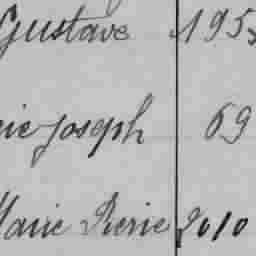 Gustave 195
rie Joseph 69
Marie Pierie 2010